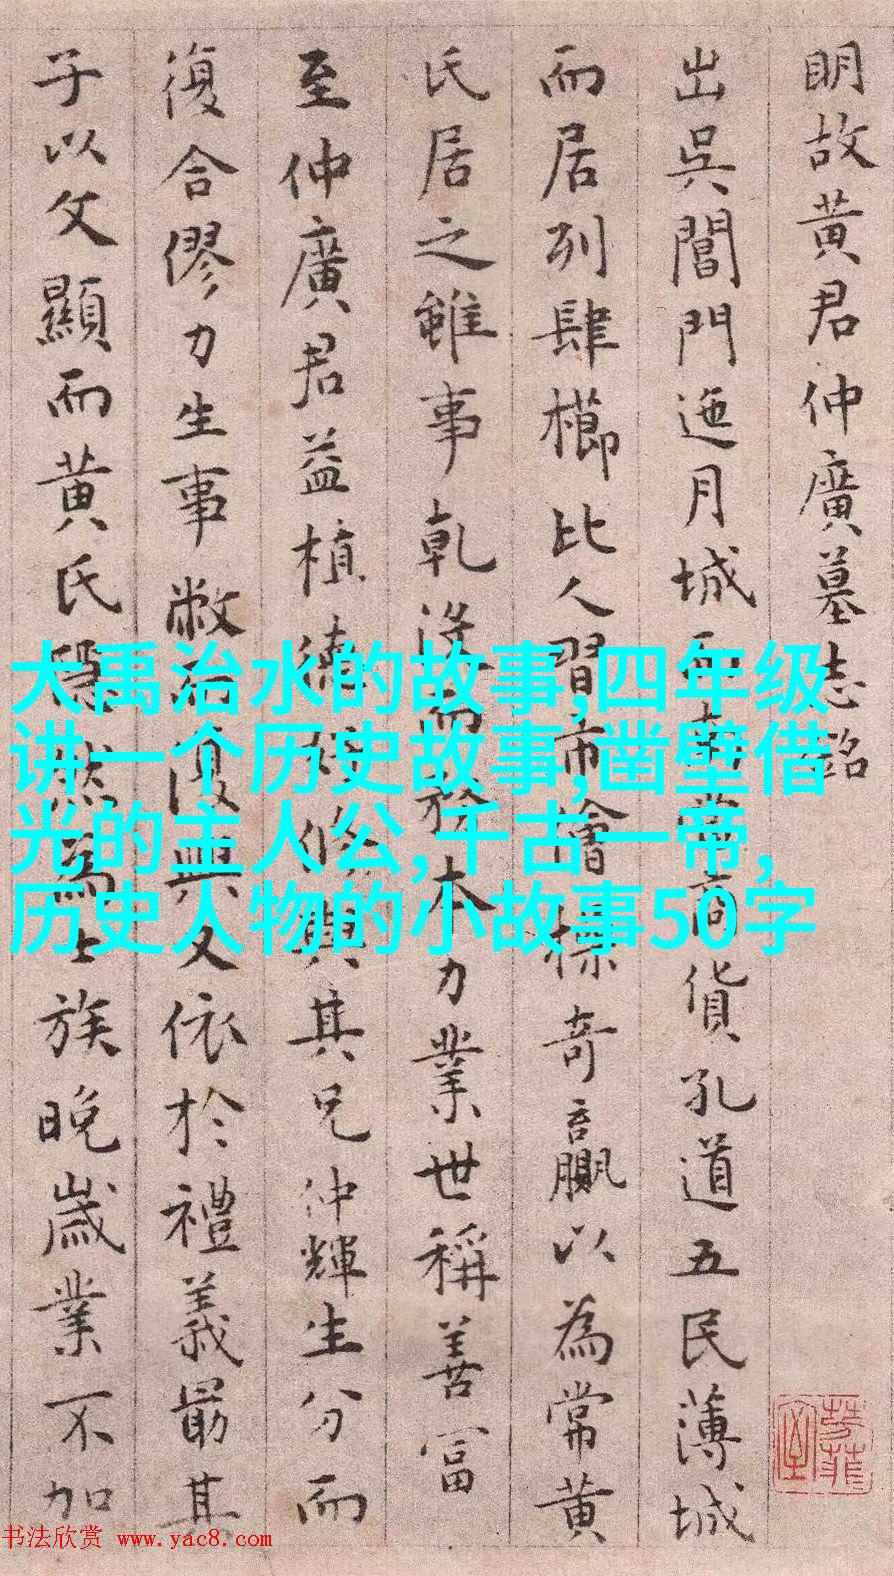 明故黄君仲廣墓志銘
出吳閶門迤月城而商貨孔道五民薄城
而居列肆櫛比人習市儈操奇贏以為常黄
氏居之雖事乾没而務本力業世稱善富
至仲廣君益植德好修與其兄仲輝生分而
復合僇力生事敝而復興又依於禮義最其
子以文顯而黄氏隱然為士族晚歲業不加
大禹治水的故事,四年级
讲一个历史故事,凿壁借
光的主人公,千古一帝,
历史人物的小故事50字
书法欣赏 www.yac8.com